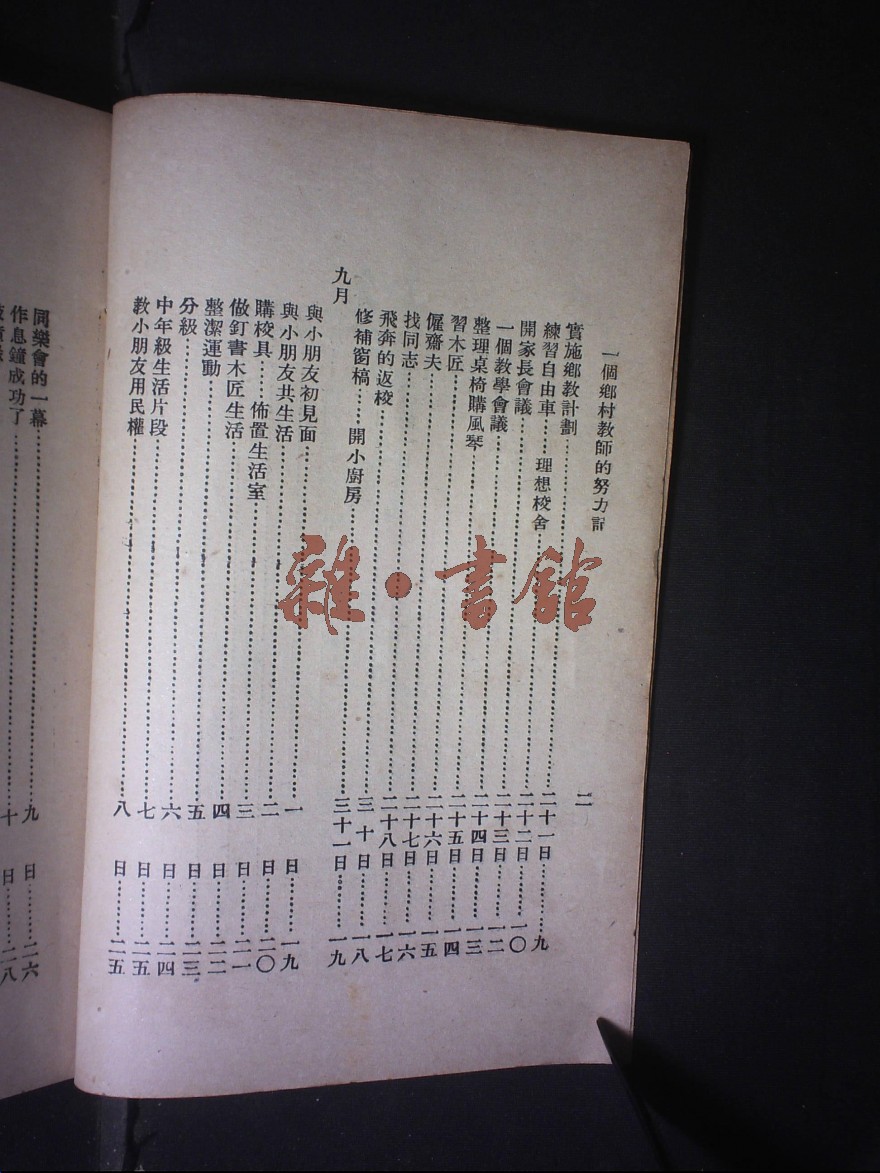 一個鄉村教師的努力記
二
實施鄉教計劃……二十一日……九
練習自由車……理想校舍……二十二日……一〇
開家長會議……二十三日……一二
一個教學會議……二十四日……一三
整理桌椅購風琴……二十五日……一四
習木匠……二十六日……一五
僱齋夫……二十七日……一六
找同志……二十八日……一七
飛奔的返校……三十日……一八
修補窗槅……開小廚房……三十一日……一九
九月
與小朋友初見面……一日……一九
與小朋友共生活……二日……二〇
購校具……佈置生活室……三日……二一
做釘書木匠生活……四日……二二
整潔運動……五日……二三
分級……六日……二四
中年級生活片段……七日……二五
教小朋友用民權……八日……二五
同樂會的一幕……九日……二六
作息鐘成功了……十日……二八
雜·書館